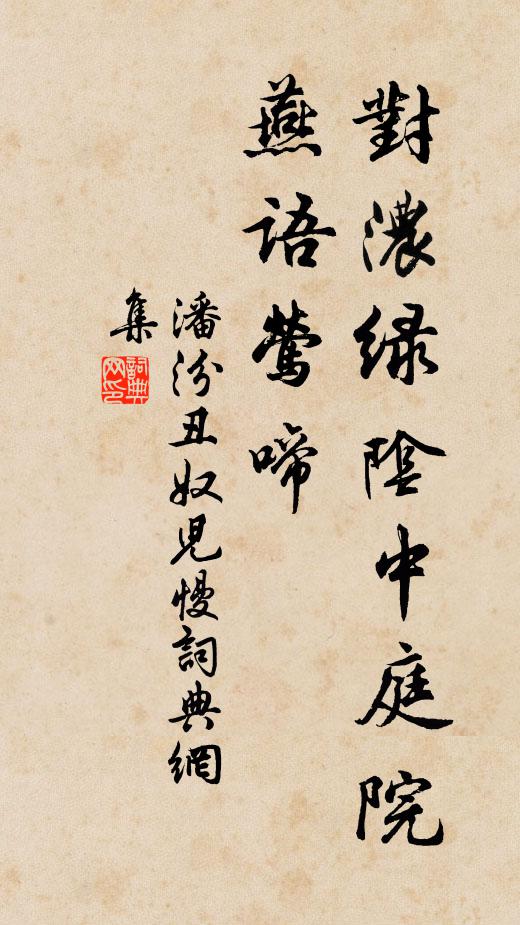 對濃緑陰中庭院
燕語鶯啼
潘汾丑奴兒慢詞典網
集
詞典
网印